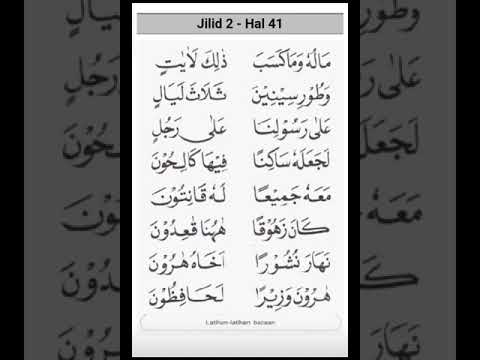 Jilid 2 - Hal 41
مَالُهٗ وَمَا كَسَبَ ذٰلِكَ لَاٰيٰتٍ
وَطُوْرِ سِيْنِيْنَ ثَلَاثَ لَيَالٍ
عَلٰى رَسُوْلِنَا عَلٰى رَجُلٍ
لَجَعَلَهٗ سَاكِنًا فِيْهَا كَالِحُوْنَ
مَعَهٗ جَمِيْعًا لَهٗ قَانِتُوْنَ
كَانَ زَهُوْقًا هٰهُنَا قٰعِدُوْنَ
نَهَارَ نُشُوْرًا اَخَاهُ هٰرُوْنَ
هٰرُوْنَ وَزِيْرًا لَحَافِظُوْنَ
Latihan-latihan bacaan